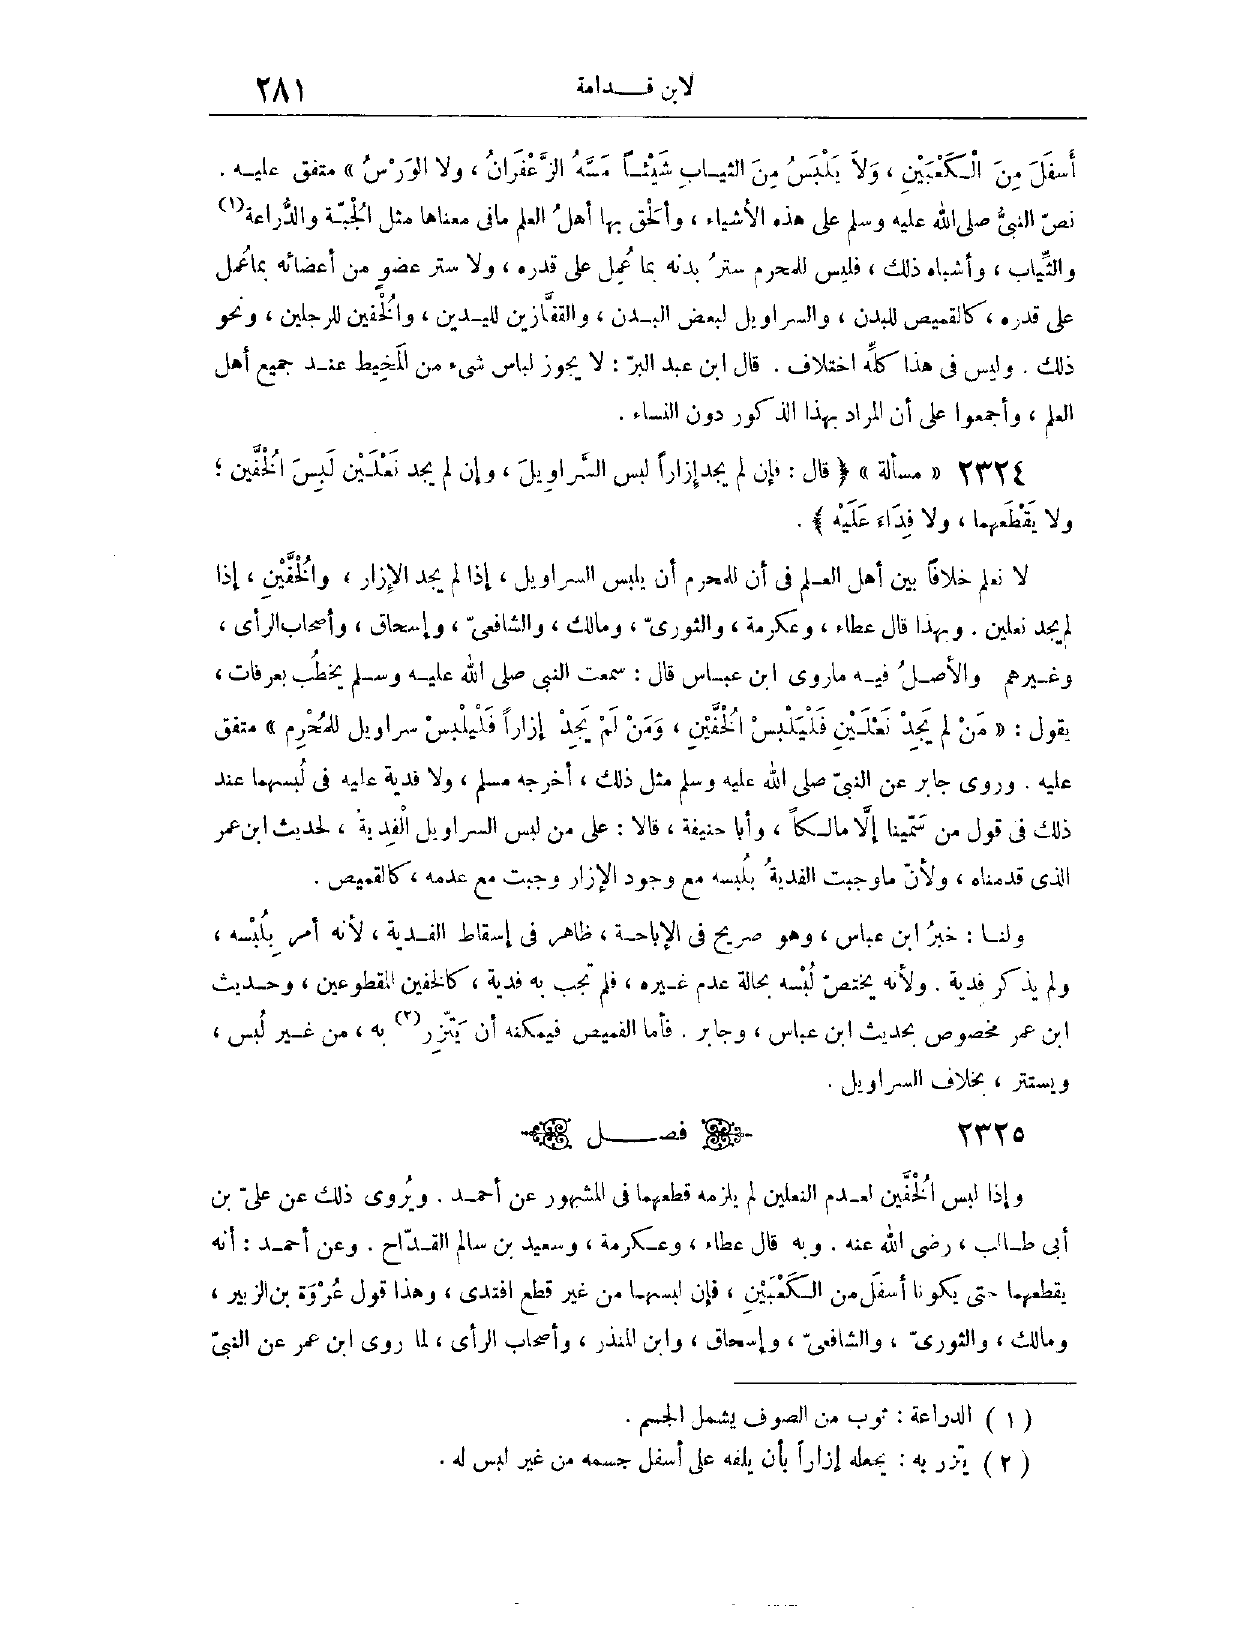 لابن قـــدامة ٢٨١
أَسفَلَ مِنَ الْـكَعْبَيْنِ ، وَلاَ يَلْبَسُ مِنَ الثيـابِ شَيْئـاً مَسَّهُ الزَّعْفَرَانُ ، ولا الوَرْسُ » متفق عليـه .
نصّ النبيُّ صلى الله عليه وسلم على هذه الأشياء ، وألْحَق بها أهلُ العلم مافى معناها مثل الجُبّـة والدُّراعة(١)
والثِّياب ، وأشباه ذلك ، فليس للمحرم سترُ بدنه بما عُمِل على قدره ، ولا ستر عضوٍ من أعضائه بماعُمل
على قدره ، كالقميص للبدن ، والسراويل لبعض البـدن ، والقفَّازين لليـدين ، والْخُفين للرجلين ، ونحو
ذلك . وليس فى هذا كلِّه اختلاف . قال ابن عبد البرّ : لا يجوز لباس شىء من الْمَخيط عنـد جميع أهل
العلم ، وأجمعوا على أن المراد بهذا الذكور دون النساء .
٢٣٢٤ « مسألة » ﴿ قال : فإن لم يجد إزاراً لبس السَّراوِيلَ ، وإن لم يجد نَعْلَـيْن لَبِسَ الْخُفَّين ؛
ولا يَقْطَعهما ، ولا فِدَاءَ عَلَيْه ﴾ .
لا نعلم خلافاً بين أهل العـلم فى أن للمحرم أن يلبس السراويل ، إذا لم يجد الإزار ، والْخُفَّيْنِ ، إذا
لم يجد نعلين . وبهذا قال عطاء ، وعكرمة ، والثورىّ ، ومالك ، والشافعىّ ، وإسحاق ، وأصحاب الرأى ،
وغـيرهم والأصـلُ فيـه ماروى ابن عبـاس قال : سمعت النبى صلى الله عليـه وسـلم يخطُب بعرفات ،
يقول : « مَنْ لم يَجِدْ نَعْلَـيْنِ فَلْيَلْبسْ الْخُفَّيْنِ ، وَمَنْ لَمْ يَجِدْ إزاراً فَلْيلْبسْ سراويل للمُحْرِم » متفق
عليه . وروى جابر عن النبىّ صلى الله عليه وسلم مثل ذلك ، أخرجه مسلم ، ولا فدية عليه فى لُبسهما عند
ذلك فى قول من سَمّينا إلَّا مالـكاً ، وأبا حنيفة ، قالا : على من لبس السراويل الْفِدية ، لحديث ابن عمر
الذى قدمناه ، ولأنّ ماوجبت الفدية بلُبسه مع وجود الإزار وجبت مع عدمه ، كالقميص .
ولنـا : خبرُ ابن عباس ، وهو صريح فى الإباحـة ، ظاهر فى إسقاط الفـدية ، لأنه أمر بِلُبْسه ،
ولم يذكر فدية . ولأنه يختصّ لُبْسه بحالة عدم غـيره ، فلم تجب به فدية ، كالخفين المقطوعين ، وحـديث
ابن عمر مخصوص بحديث ابن عباس ، وجابر . فأما القميص فيمكنه أن يَتّزِر(٢) به ، من غـير لُبس ،
ويستتر ، بخلاف السراويل .
٢٣٢٥ فصـــل
وإذا لبس الْخُفَّين لعـدم النعلين لم يلزمه قطعهما فى المشهور عن أحمـد . ويُروى ذلك عن علىّ بن
أبى طـالب ، رضى الله عنه . وبه قال عطاء ، وعـكرمة ، وسعيد بن سالم القـدّاح . وعن أحمـد : أنه
يقطعهما حتى يكونا أسفَل من الـكَعْبَيْنِ ، فإن لبسهـما من غير قطع افتدى ، وهذا قول عُرْوَة بن الزبير ،
ومالك ، والثورىّ ، والشافعىّ ، وإسحاق ، وابن المنذر ، وأصحاب الرأى ، لما روى ابن عمر عن النبىّ
( ١ ) الدراعة : ثوب من الصوف يشمل الجسم .
( ٢ ) يتّزر به : يجعله إزاراً بأن يلفه على أسفل جسمه من غير لبس له .